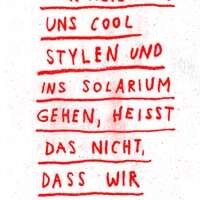 UNS COOL
STYLEN UND
INS SOLARIUM
GEHEN, HEISST
DAS NICHT,
DASS WIR